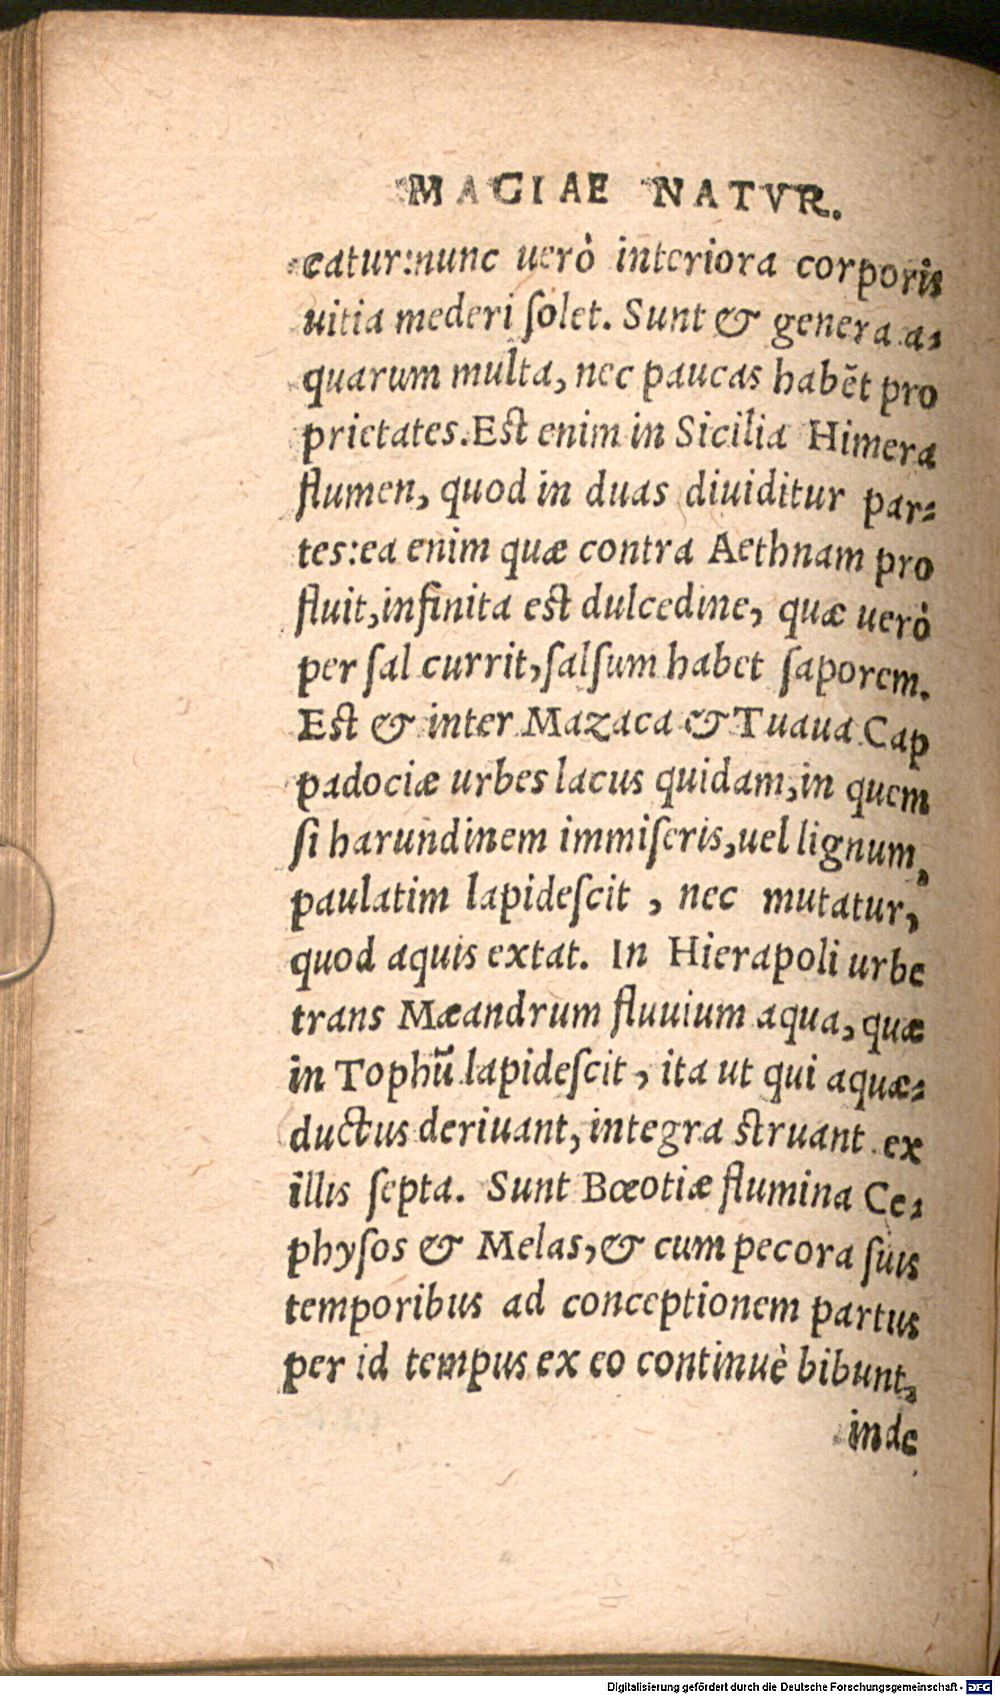 MAGIAE NATVR.
catur:nunc uerò interiora corporis
uitia mederi ſolet. Sunt & genera a-
quarum multa, nec paucas habēt pro
prietates. Est enim in Sicilia Himera
flumen, quod in duas diuiditur par-
tes:ea enim quæ contra Aethnam pro
fluit, infinita est dulcedine, quæ uerò
per ſal currit, ſalſum habet ſaporem.
Est & inter Mazaca & Tuaua Cap
padociæ urbes lacus quidam, in quem
ſi harundinem immiſeris, uel lignum,
paulatim lapideſcit, nec mutatur,
quod aquis extat. In Hierapoli urbe
trans Mæandrum fluuium aqua, quæ
in Tophū lapideſcit, ita ut qui aquæ-
ductus deriuant, integra struant ex
illis ſepta. Sunt Bœotiæ flumina Ce-
phyſos & Melas, & cum pecora ſuis
temporibus ad conceptionem partus
per id tempus ex eo continuè bibunt,
inde
Digitalisierung gefördert durch die Deutsche Forschungsgemeinschaft - DFG